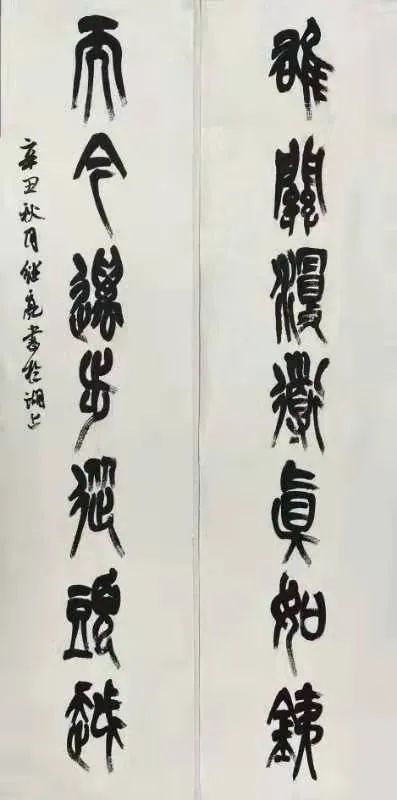 雄關漫道真如銕
而今邁步從頭越
辛丑秋月继書於湖上